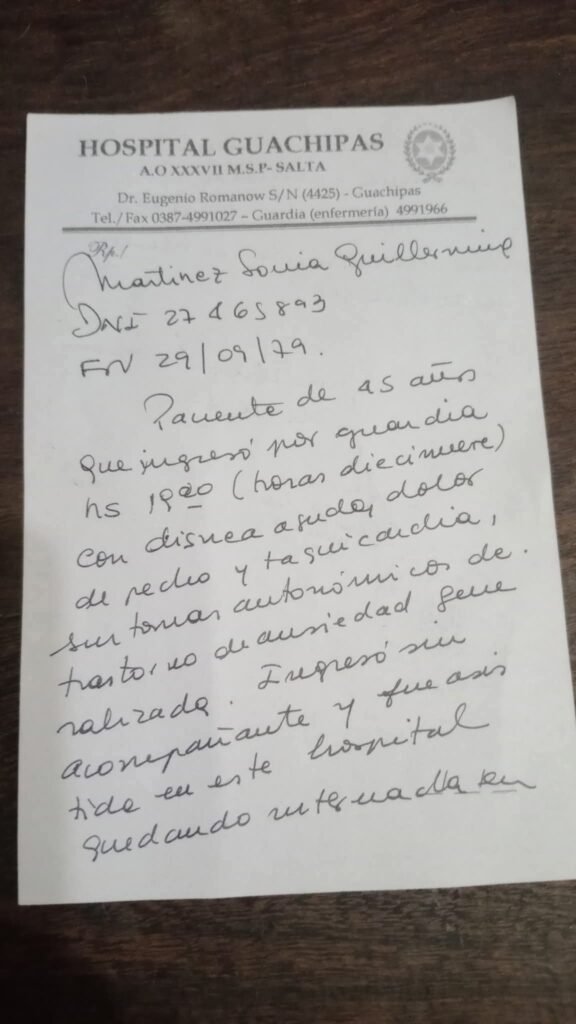 HOSPITAL GUACHIPAS
A.O XXXVII M.S.P- SALTA
Dr. Eugenio Romanow S/N (4425) - Guachipas
Tel./Fax 0387-4991027 – Guardia (enfermería) 4991966
Rp./
Martinez Sonia Guillermina
DNI 27465893
FN 29/09/79.
Paciente de 45 años
que ingresó por guardia
hs 19:00 (horas diecinueve)
con disnea aguda, dolor
de pecho y taquicardia,
sintomas autonómicos de
trastorno de ansiedad gene
ralizada. Ingresó sin
acompañante y fue asis
tida en este hospital
quedando internada en